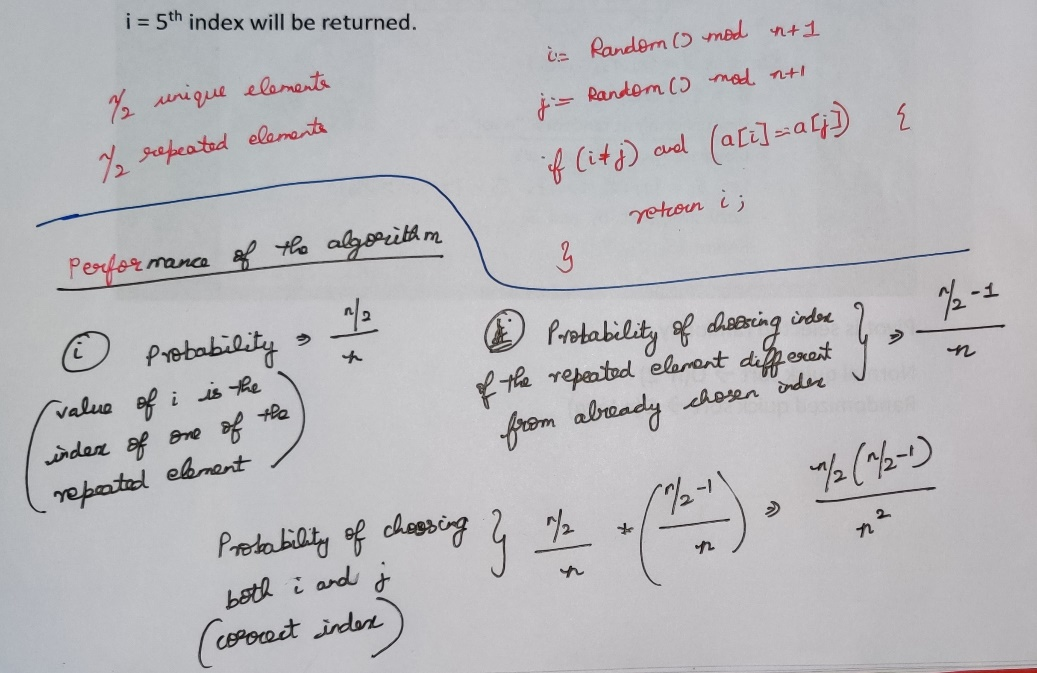 i = 5th index will be returned.
n/2 unique elements
n/2 repeated elements
i = Random() mod n+1
j = Random() mod n+1
if (i≠j) and (a[i]==a[j]) {
return i;
}
Performance of the algorithm
i Probability ⇒ n/2 / n
(value of i is the
index of one of the
repeated element)
j Probability of choosing index
of the repeated element different
from already chosen index } ⇒ n/2-1 / n
Probability of choosing } n/2 / n * (n/2-1 / n) ⇒ n/2(n/2-1) / n²
both i and j
(correct index)